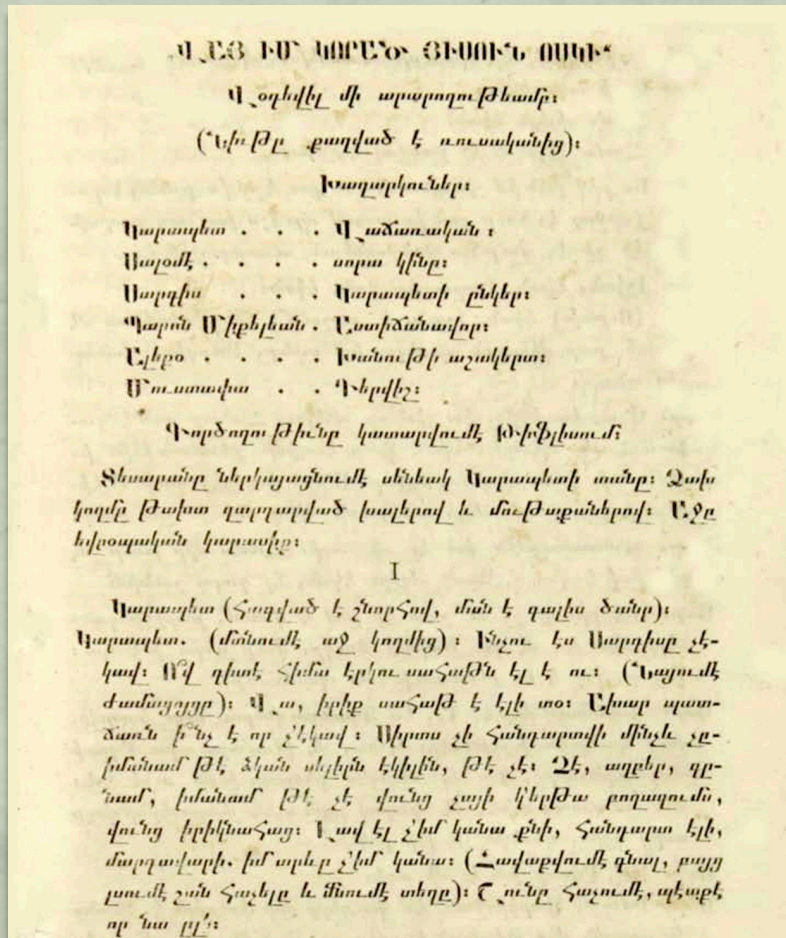 ՎԱՅ ԻՄ ԿՈՐԱԾ ՅԻՍՈՒՆ ՈՍԿԻ՜
Վօդեվիլ մի արարողութեամբ։
(Նիւթը քաղված է ռուսականից)։
Խաղարկուներ։
Կարապետ . . . Վաճառական ։
Սալօմէ . . . . սորա կինը։
Սարգիս . . . Կարապետի ընկեր։
Պարոն Միքելեան . Աստիճանավոր։
Ալեքօ . . . . Խանութի աշակերտ։
Մուստաֆա . . Դերվիշ։
Գործողութիւնը կատարվումէ Թիֆլիսում։
Տեսարանը ներկայացնումէ սենեակ Կարապետի տանը։ Ձախ
կողմը թախտ զարդարված խալերով և մութաքաներով։ Աջը
եվրօպական կարասիք։
I
Կարապետ (Հագված է շնորհով, ման է գալիս ծանր)։
Կարապետ. (մտնումէ աջ կողմից) ։ Ինչու էս Սարգիսը չէ-
կավ։ Ո՞վ գիտէ հիմա էրկու սահաթն էլ է ու։ (Նայումէ
ժամացոյցը)։ Վա, իրիք սահաթ է էլի տօ։ Աիար պատ-
ճառն ի՞նչ է որ չէկավ ։ Սիրտս չի հանդարտվի մինչև չը-
իմանամ թէ ձկան սելերն էկիլին, թէ չէ։ Չէ, աղբեր, գը-
նամ, իմանամ թէ չէ վունց չայի կ՚երթա բողազումս,
վունց իրիկնահաց։ Լավ էլ չիմ կանա քնի, հանդարտ էլի,
մարդավարի. իմ արևը չիմ կանա։ (Հավաքվումէ գնալ, բայց
լսումէ շան հաչելը և մնումէ տեղը)։ Շունը հաչումէ, պէտքէ
որ նա ըլի։